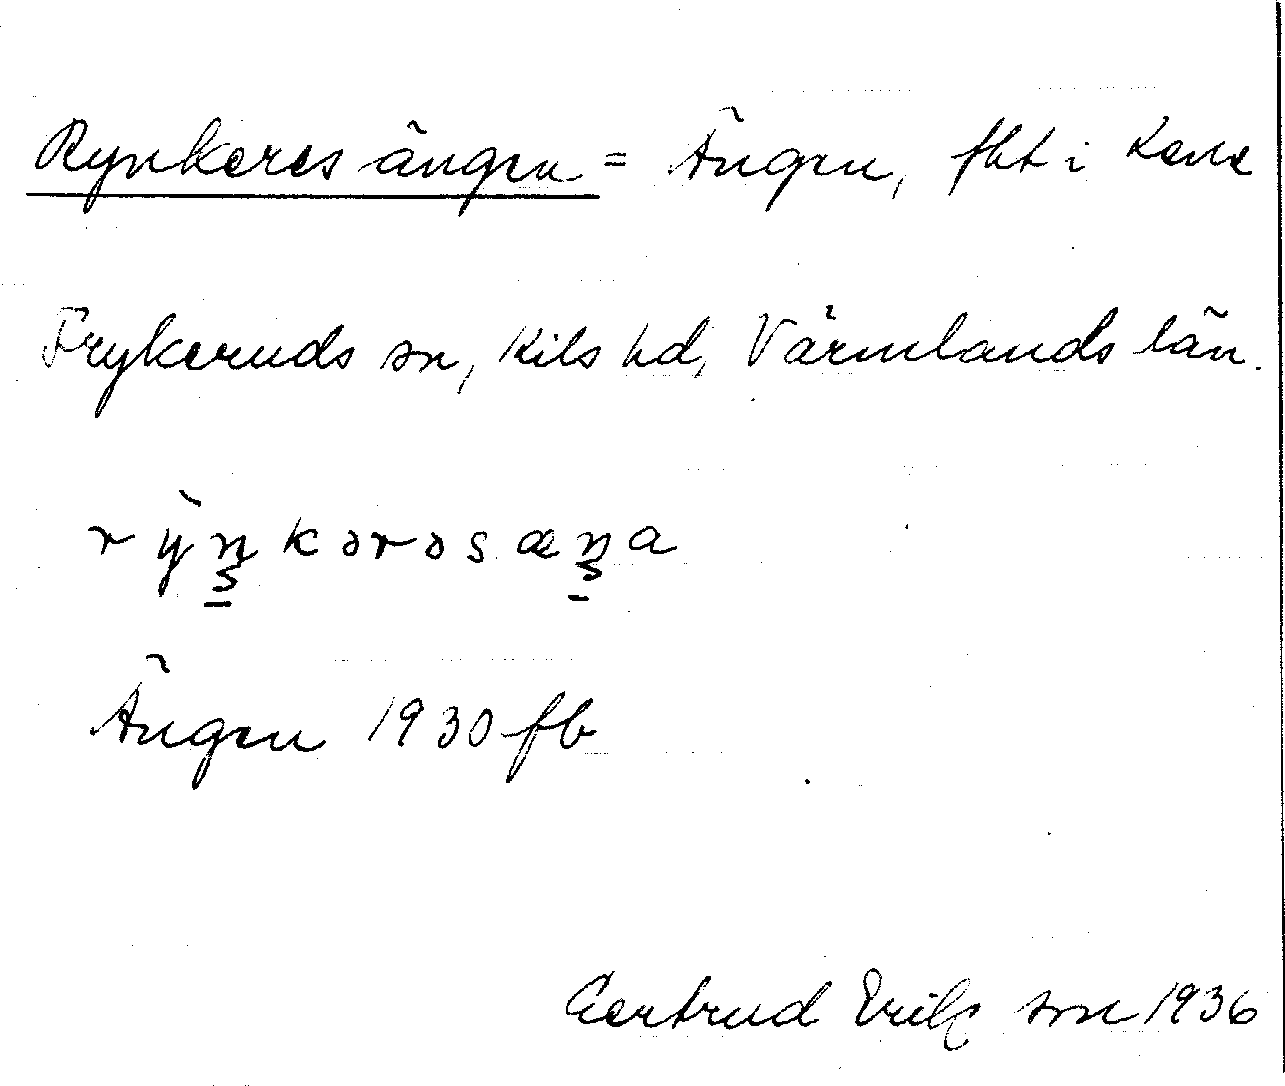 Rynkeres ängen = Ängen, fht i Kene
Frykeruds sn, Kils hd, Värmlands län.
rỳŋkərəsæŋa
Ängen 1930 fb
Gertrud Eriksson 1936